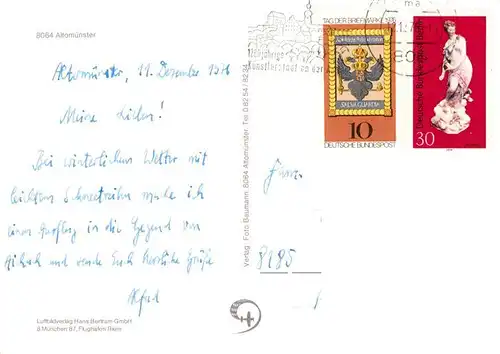 8064 Altomünster
Altomünster, 11. Dezember 1976
Meine Lieben!
Bei winterlichem Wetter mit
leichtem Schneetreiben mache ich
einen Ausflug in die Gegend von
Aichach und sende Euch herzliche Grüße
Alfred
Luftbildverlag Hans Bertram GmbH
8 München 87, Flughafen Riem
Verlag: Foto Baumann 8064 Altomünster Tel. 0 82 54 /
TAG DER BRIEFMARKE 1976
10
DEUTSCHE BUNDESPOST
Deutsche Bundespost Berlin
30
ma
Fam.
8185